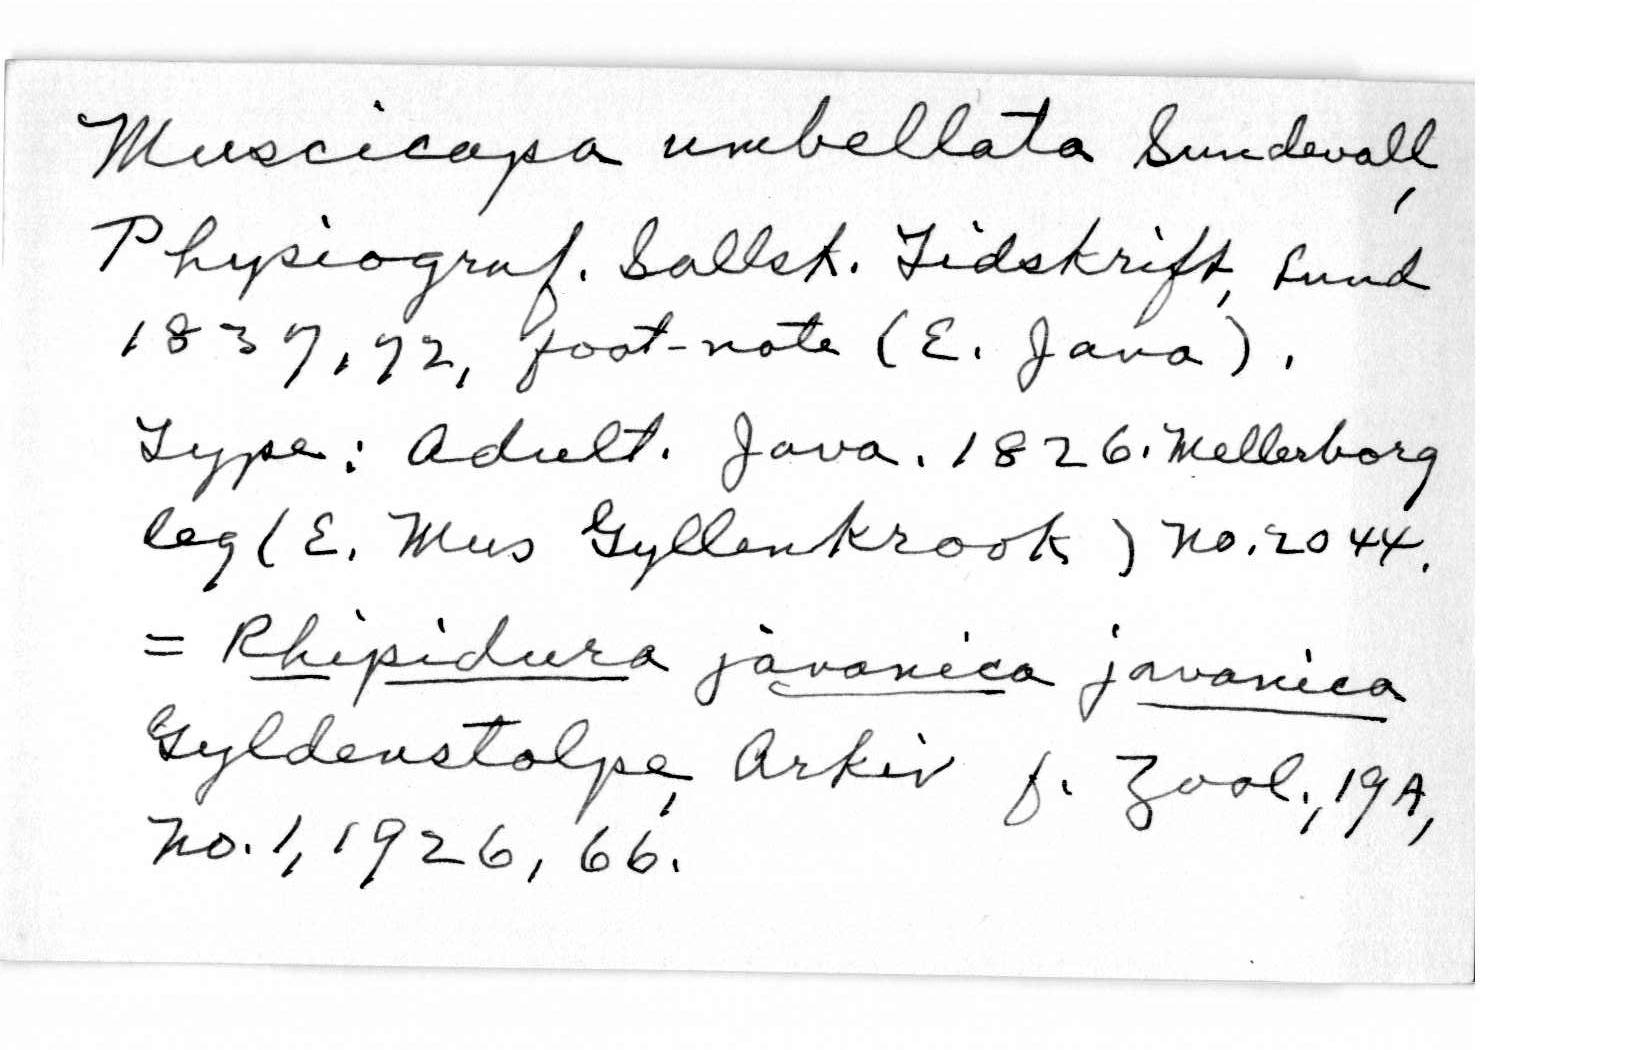 Muscicapa umbellata Sundevall,
Physiograf. Sallsk. Tidskrift, Lund
1837, 72, foot-note (E. Java).
Type: Adult. Java. 1826. Mellerborg
leg (E. Mus Gyllenkrook) No. 2044.
= Rhipidura javanica javanica
Gyldenstolpe, Arkiv f. Zool., 19A,
No. 1, 1926, 66.